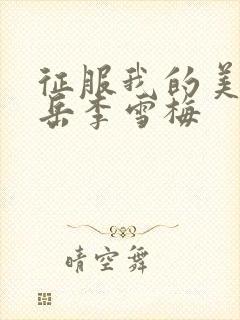 征服我的美
岳李雪梅
晴空舞